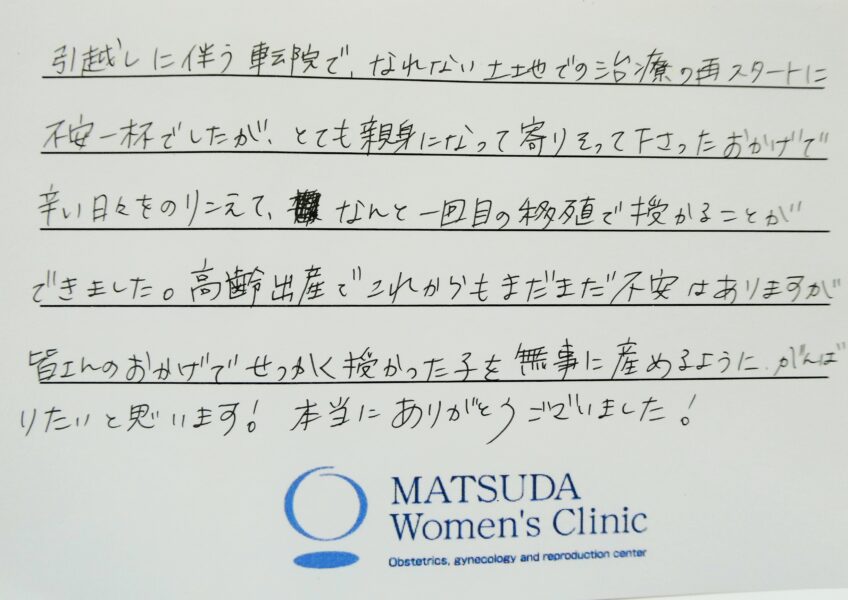 引越しに伴う転院で、なれない土地での治療の再スタートに
不安一杯でしたが、とても親身になって寄りそって下さったおかげで
辛い日々をのりこえて、なんと一回目の移殖で授かることが
できました。高齢出産でこれからもまだまだ不安はありますが
皆さんのおかげでせっかく授かった子を無事に産めるように、がんば
りたいと思います! 本当にありがとうございました!
MATSUDA
Women's Clinic
Obstetrics, gynecology and reproduction center